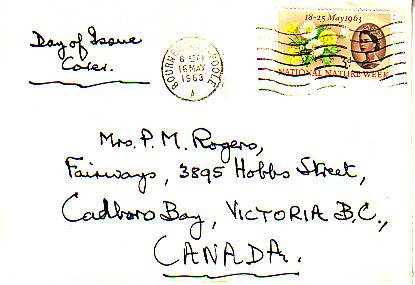 Day of Issue
Cover.
18-25 May 1963
3d
NATIONAL NATURE WEEK
POOLE
16 MAY
1963
Mrs. P. M. Rogers,
Fairways, 3895 Hobbs Street,
Cadboro Bay, VICTORIA B.C.,
CANADA.